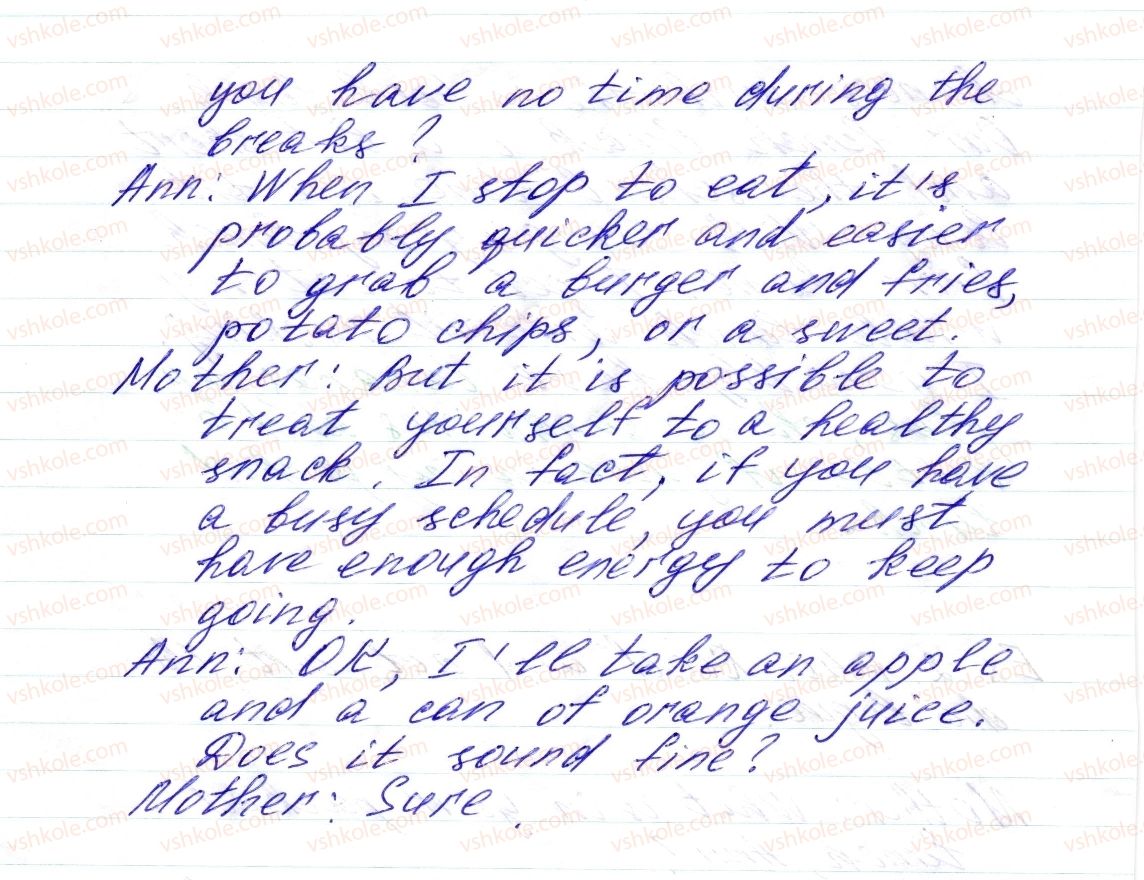 you have no time during the
breaks?
Ann: When I stop to eat, it's
probably quicker and easier
to grab a burger and fries,
potato chips, or a sweet.
Mother: But it is possible to
treat yourself to a healthy
snack. In fact, if you have
a busy schedule, you must
have enough energy to keep
going.
Ann: OK, I'll take an apple
and a can of orange juice.
Does it sound fine?
Mother: Sure.